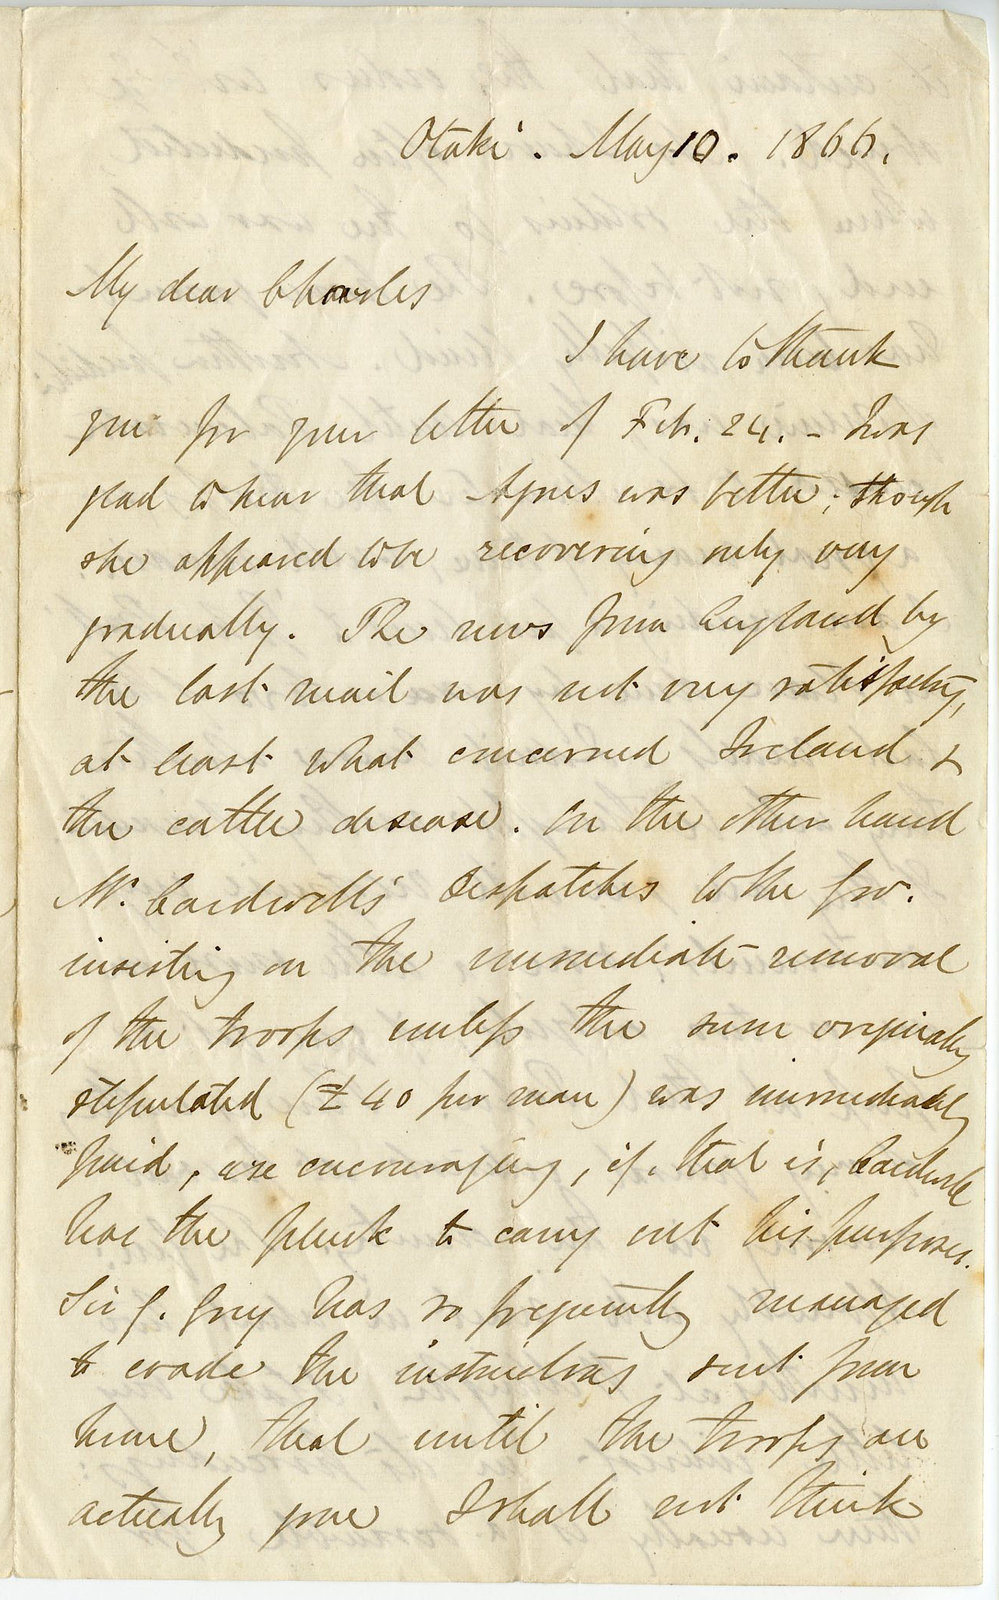 Otaki. May 10. 1866.
My dear Charles
I have to thank
you for your letter of Feb. 24. - I was
glad to hear that Agnes was better; though
she appeared to be recovering only very
gradually. The news from England by
the last mail was not very satisfactory,
at least what concerned Ireland &
the cattle disease. On the other hand
Mr. Cardwell's despatches to the Gov.
insisting on the immediate removal
of the troops unless the sum originally
stipulated (£40 per man) was immediately
paid, are encouraging, if, that is, Cardwell
has the pluck to carry out his purposes.
Sir G. Grey has so frequently managed
to evade the instructions sent from
home, that until the troops are
actually gone I shall not think